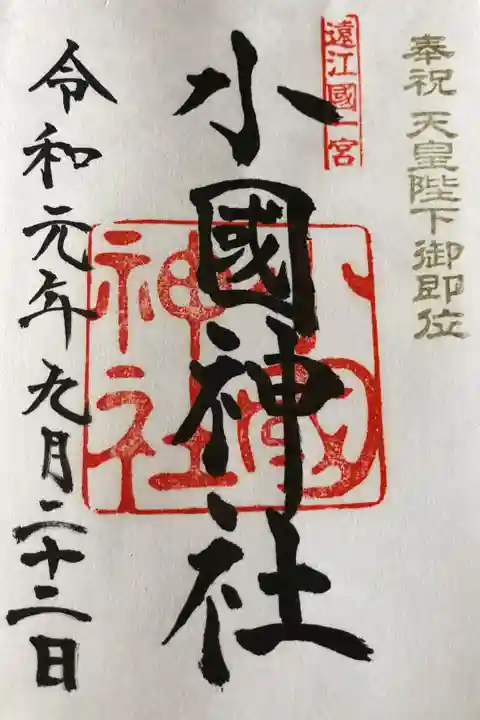 奉祝 天皇陛下御即位
遠江國一宮
小國神社
小國神社
令和元年九月二十二日